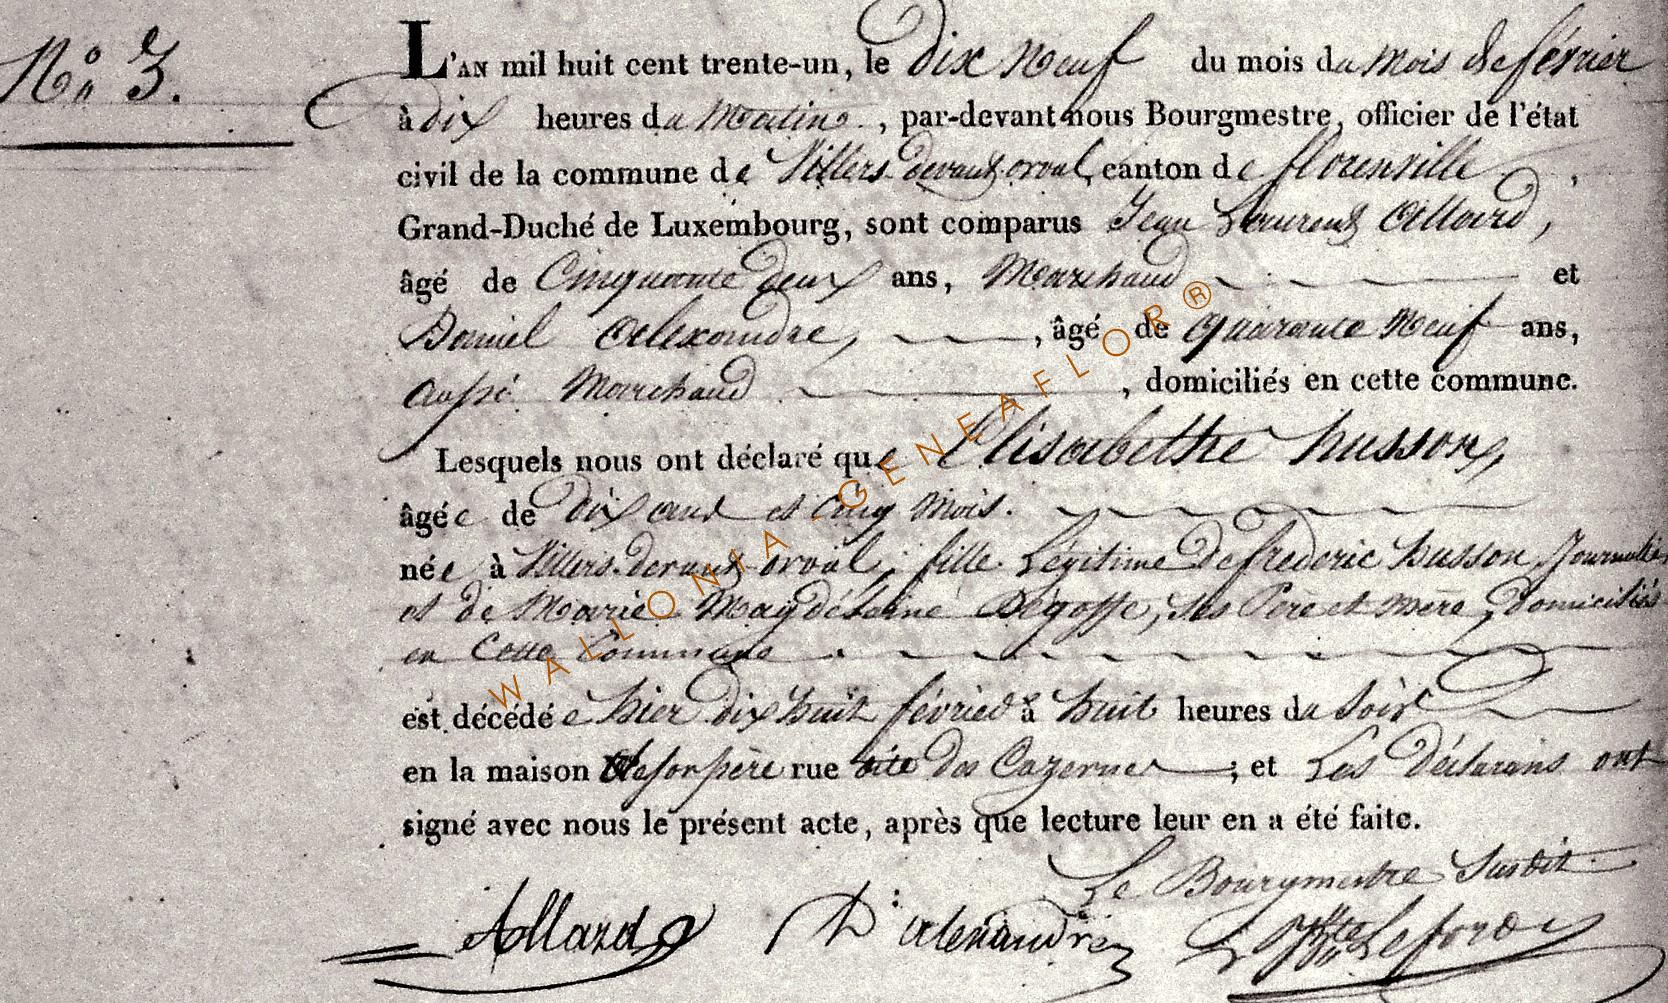 N.º 3.
L'AN mil huit cent trente-un, le Dix Neuf du mois du Mois de février
à dix heures du Matin, par-devant nous Bourgmestre, officier de l'état
civil de la commune de Villers devant orval, canton de florenville,
Grand-Duché de Luxembourg, sont comparus Jean Laurent Allard,
âgé de Cinquante deux ans, Marchand et
Daniel Alexandre, , âgé de quarante Neuf ans,
aussi Marchand , domiciliés en cette commune.
Lesquels nous ont déclaré que Elisabethe husson,
âgée de dix ans et cinq Mois.
née à Villers devant orval, fille Légitime de frederic husson, Journalier
et de Marie Magdelaine Degoffe, ses Père et mère, domiciliés
en Cette Commune
est décédée hier dix huit février à huit heures du Soir
en la maison de son père rue dite des Cazernes ; et Les déclarans ont
signé avec nous le présent acte, après que lecture leur en a été faite.
Le Bourgmestre Susdit
Allard D: alexandre Leford
WALLONIA GENEAFLOR®